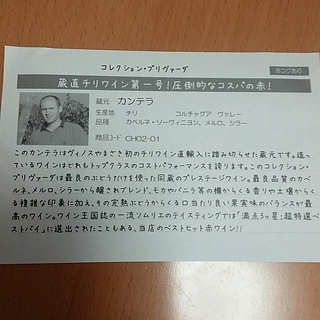 コレクション・プリヴァーダ
赤コクあり
蔵直チリワイン第一号!圧倒的なコスパの赤!
蔵元 カンテラ
生産地 チリ コルチャグア ヴァレー
品種 カベルネ・ソーヴィニヨン、メルロ、シラー
商品コード CH02-01
このカンテラはヴィノスやまざき初のチリワイン直輸入に踏み切らせた蔵元です。造っ
ているワインはどれもトップクラスのコストパフォーマンスを誇ります。このコレクション・
プリヴァーダは最良のぶどうだけを使った同蔵のプレステージワイン。最良品質のカベ
ルネ、メルロ、シラーから醸されブレンド、モカやバニラ等の樽からくる香りや土壌からく
る複雑な印象に加え、その完熟ぶどうからくる口当たり良い果実味のバランスが最
高のワイン。ワイン王国誌の一流ソムリエのテイスティングでは「満点5ッ星:超特選ベ
ストバイ」に選出されたこともある、当店のベストヒット赤ワイン!!